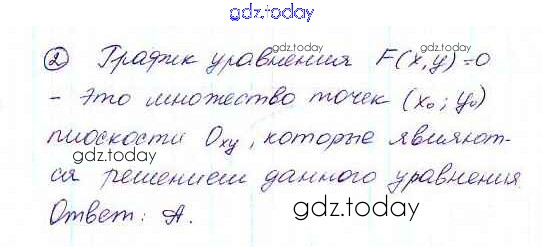 gdz.today
② График уравнения F(x,y)=0
gdz.today
gdz.today
- это множество точек (x₀; y₀)
gdz.today
плоскости Oxy, которые являют-
gdz.today
ся решением данного уравнения
Ответ: А.
gdz.today